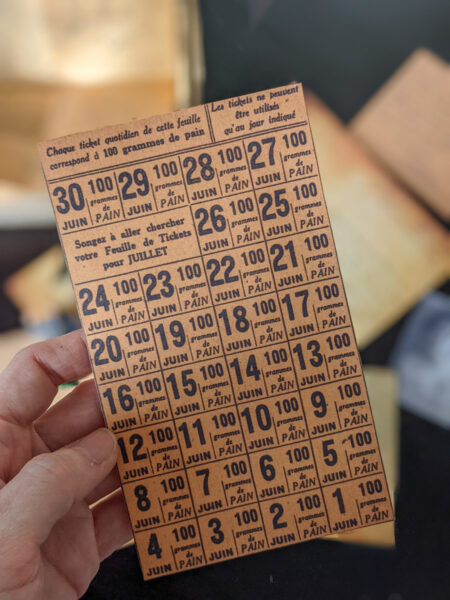 Chaque ticket quotidien de cette feuille
correspond à 100 grammes de pain
Les tickets ne peuvent
être utilisés
qu'au jour indiqué
30 JUIN 100 grammes de PAIN
29 JUIN 100 grammes de PAIN
28 JUIN 100 grammes de PAIN
27 JUIN 100 grammes de PAIN
Songez à aller chercher
votre Feuille de Tickets
pour JUILLET
26 JUIN 100 grammes de PAIN
25 JUIN 100 grammes de PAIN
24 JUIN 100 grammes de PAIN
23 JUIN 100 grammes de PAIN
22 JUIN 100 grammes de PAIN
21 JUIN 100 grammes de PAIN
20 JUIN 100 grammes de PAIN
19 JUIN 100 grammes de PAIN
18 JUIN 100 grammes de PAIN
17 JUIN 100 grammes de PAIN
16 JUIN 100 grammes de PAIN
15 JUIN 100 grammes de PAIN
14 JUIN 100 grammes de PAIN
13 JUIN 100 grammes de PAIN
12 JUIN 100 grammes de PAIN
11 JUIN 100 grammes de PAIN
10 JUIN 100 grammes de PAIN
9 JUIN 100 grammes de PAIN
8 JUIN 100 grammes de PAIN
7 JUIN 100 grammes de PAIN
6 JUIN 100 grammes de PAIN
5 JUIN 100 grammes de PAIN
4 JUIN 100 grammes de PAIN
3 JUIN 100 grammes de PAIN
2 JUIN 100 grammes de PAIN
1 JUIN 100 grammes de PAIN